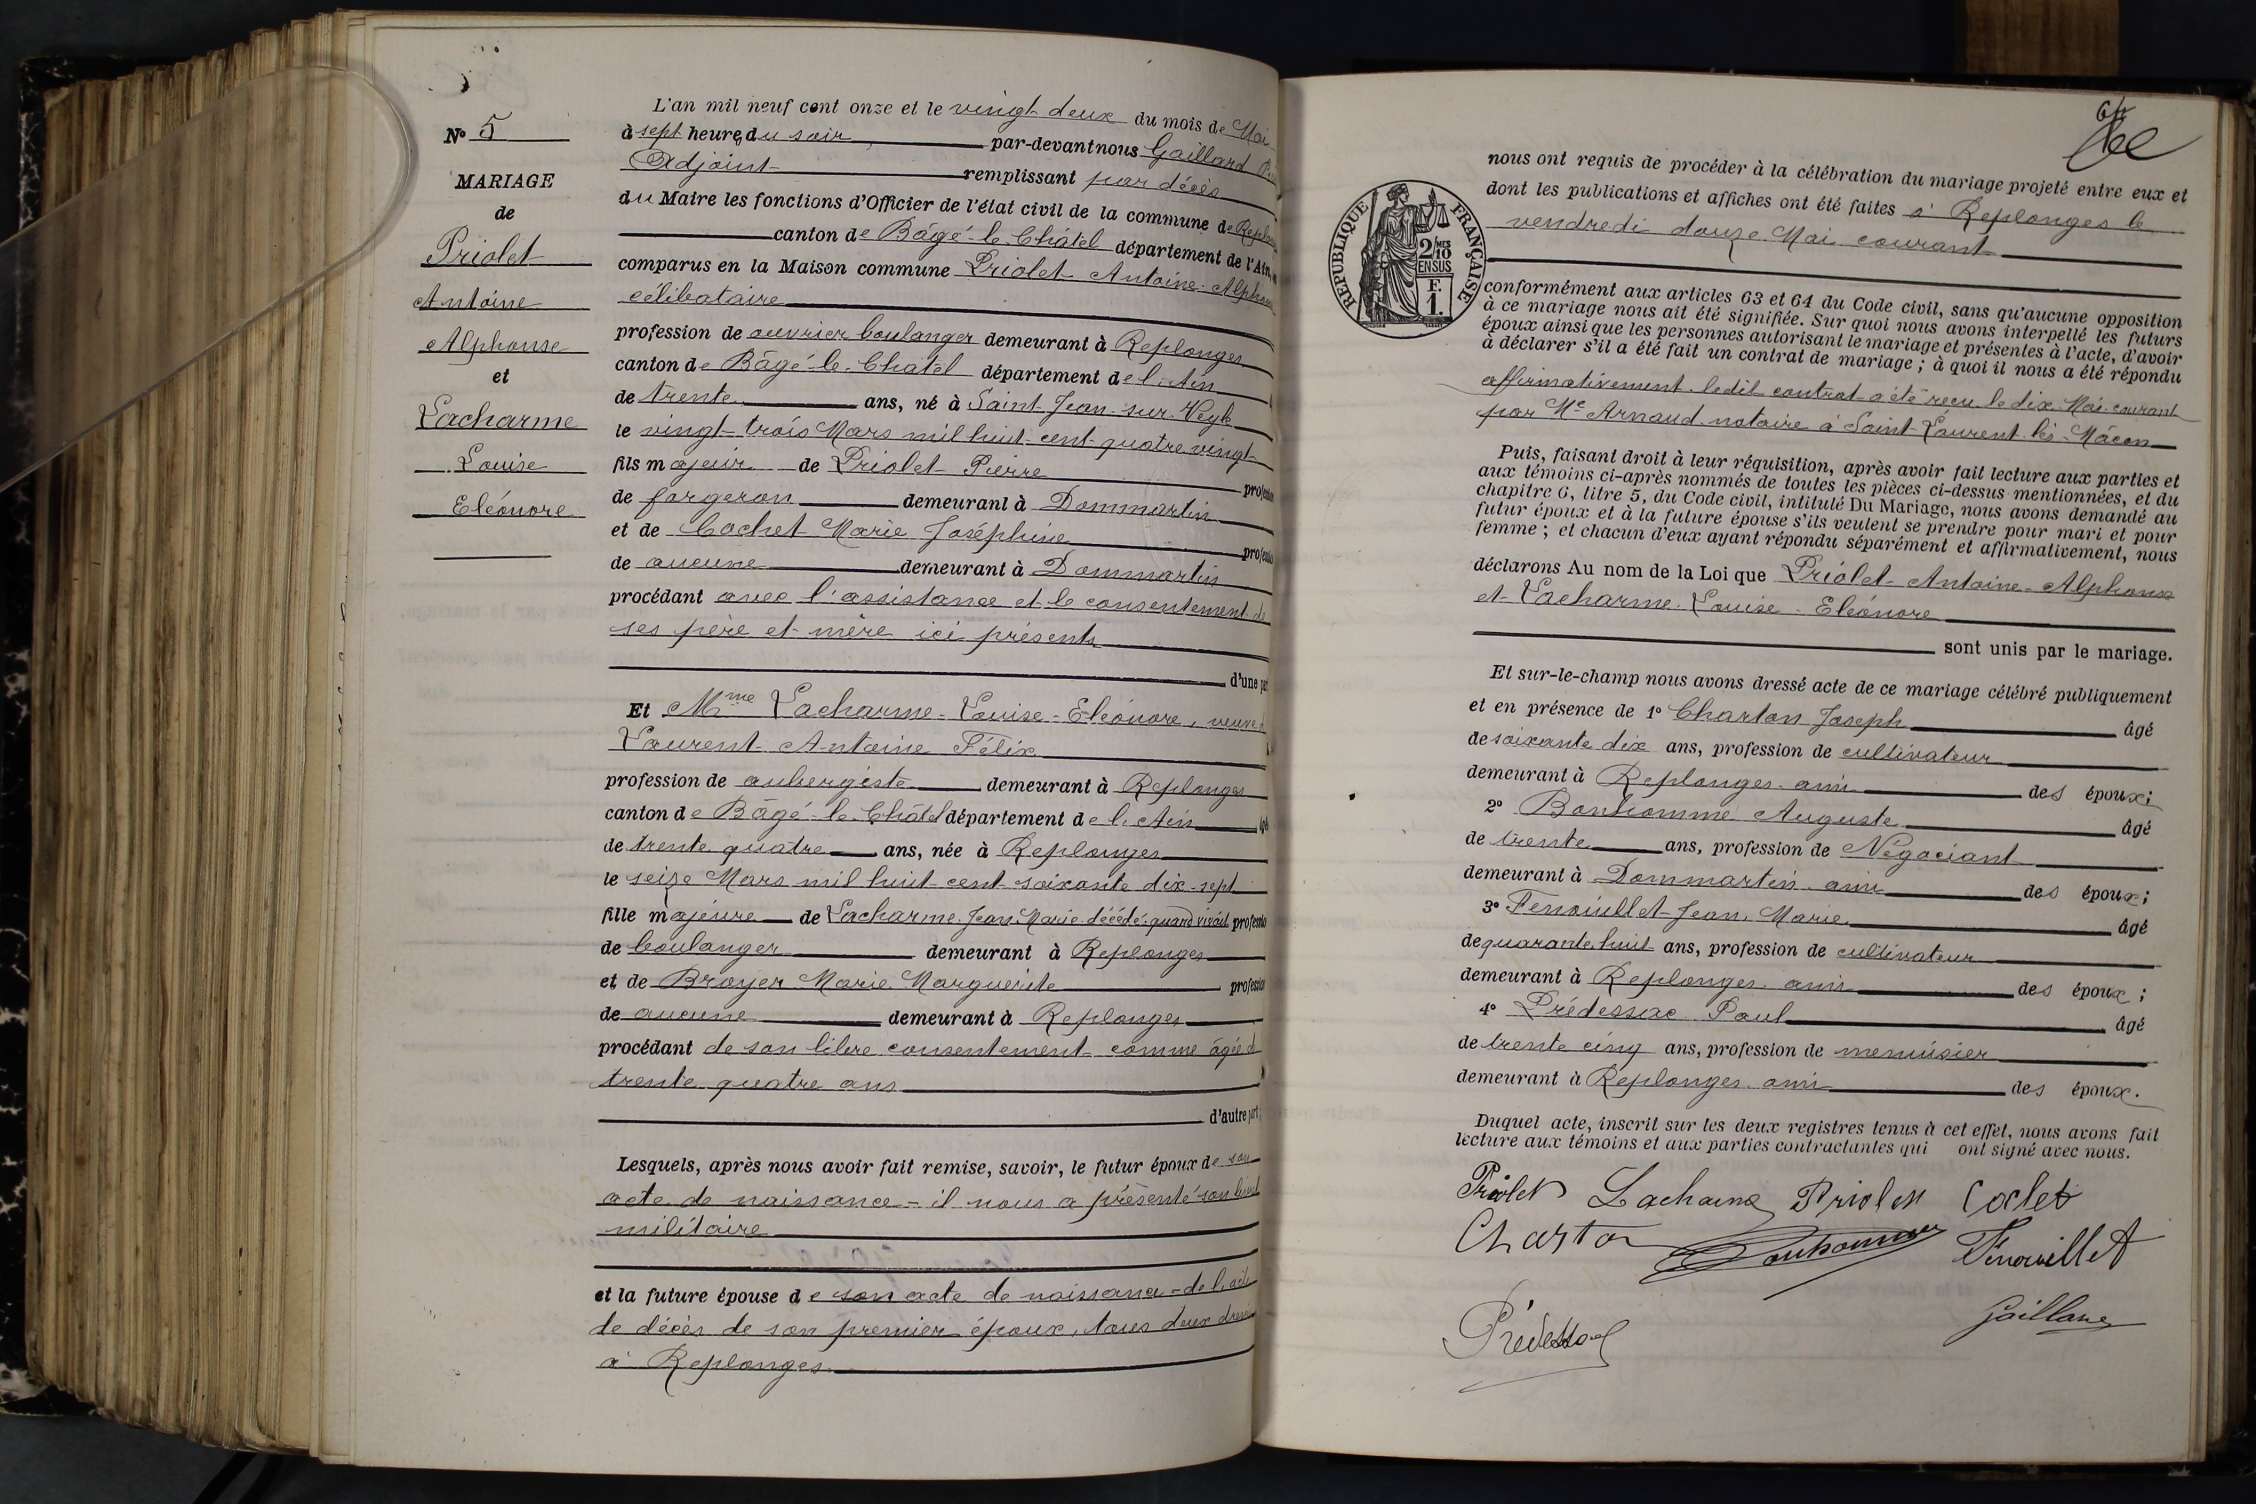 N° 5
MARIAGE
de
Priolet
Antoine
Alphonse
et
Lacharme
Louise
Eléonore
L'an mil neuf cent onze et le vingt deux du mois de Mai
à sept heures du soir par-devant nous Gaillard
Adjoint remplissant par décès
du Maire les fonctions d'Officier de l'état civil de la commune de Replonges
canton de Bâgé-le-Châtel département de l'Ain
comparus en la Maison commune Priolet Antoine-Alphonse
célibataire
profession de ouvrier boulanger demeurant à Replonges
canton de Bâgé-le-Châtel département de l'Ain
de trente ans, né à Saint-Jean-sur-Veyle
le vingt-trois Mars mil huit-cent-quatre-vingt-
fils majeur de Priolet Pierre profession
de forgeron demeurant à Dommartin
et de Cochet Marie Joséphine profession
de aucune demeurant à Dommartin
procédant avec l'assistance et le consentement de
ses père et mère ici présents
d'une part
Et Mme Lacharme-Louise-Eléonore, veuve de
Laurent Antoine Félix
profession de aubergiste demeurant à Replonges
canton de Bâgé-le-Châtel département de l'Ain âgée
de trente quatre ans, née à Replonges
le seize Mars mil huit-cent-soixante dix-sept
fille majeure de Lacharme Jean Marie décédé quand vivait profession
de boulanger demeurant à Replonges
et de Broyer Marie Marguerite profession
de aucune demeurant à Replonges
procédant de son libre consentement comme âgée de
trente quatre ans
d'autre part;
Lesquels, après nous avoir fait remise, savoir, le futur époux de son
acte de naissance - il nous a présenté son livret
militaire
et la future épouse de son acte de naissance - de l'acte
de décès de son premier époux, tous deux dressés
à Replonges
64
nous ont requis de procéder à la célébration du mariage projeté entre eux et
dont les publications et affiches ont été faites à Replonges le
vendredi douze Mai courant
REPUBLIQUE FRANÇAISE
2/10
EN SUS
F.
1.
conformément aux articles 63 et 64 du Code civil, sans qu'aucune opposition
à ce mariage nous ait été signifiée. Sur quoi nous avons interpellé les futurs
époux ainsi que les personnes autorisant le mariage et présentes à l'acte, d'avoir
à déclarer s'il a été fait un contrat de mariage ; à quoi il nous a été répondu
affirmativement. ledit contrat a été reçu le dix Mai courant
par Me Arnaud notaire à Saint-Laurent-lès-Mâcon
Puis, faisant droit à leur réquisition, après avoir fait lecture aux parties et
aux témoins ci-après nommés de toutes les pièces ci-dessus mentionnées, et du
chapitre 6, titre 5, du Code civil, intitulé Du Mariage, nous avons demandé au
futur époux et à la future épouse s'ils veulent se prendre pour mari et pour
femme ; et chacun d'eux ayant répondu séparément et affirmativement, nous
déclarons Au nom de la Loi que Priolet-Antoine-Alphonse
et Lacharme Louise-Eléonore
sont unis par le mariage.
Et sur-le-champ nous avons dressé acte de ce mariage célébré publiquement
et en présence de 1° Charton Joseph âgé
de soixante dix ans, profession de cultivateur
demeurant à Replonges ami des époux;
2° Bonhomme Auguste âgé
de trente ans, profession de Négociant
demeurant à Dommartin ami des époux;
3° Fenouillet Jean Marie âgé
de quarante huit ans, profession de cultivateur
demeurant à Replonges ami des époux;
4° Prédessac Paul âgé
de trente cinq ans, profession de menuisier
demeurant à Replonges ami des époux.
Duquel acte, inscrit sur les deux registres tenus à cet effet, nous avons fait
lecture aux témoins et aux parties contractantes qui ont signé avec nous.
Priolet Lacharme Priolet Cochet
Charton Bonhomme Fenouillet
Prédessac Gaillard